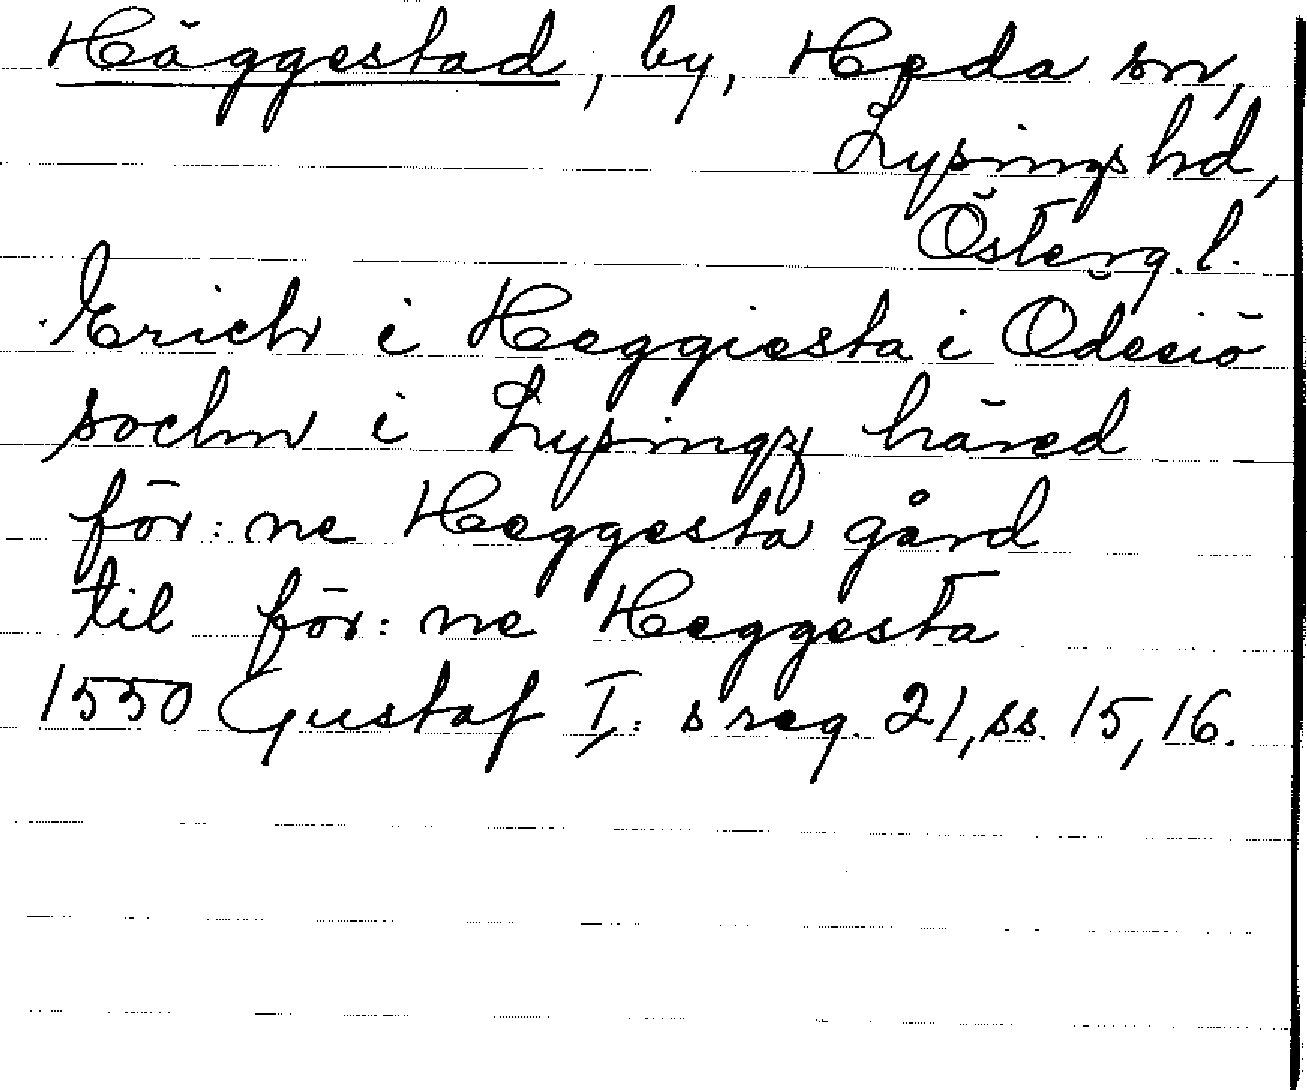 Häggestad, by, Heda sn,
Lysings hd,
Österg. l.
Erich i Heggiesta i Ödesiö
sochn i Lysingz häred
för: ne Heggesta gård
til för: ne Heggesta
1550 Gustaf I: s reg. 21, ss. 15, 16.